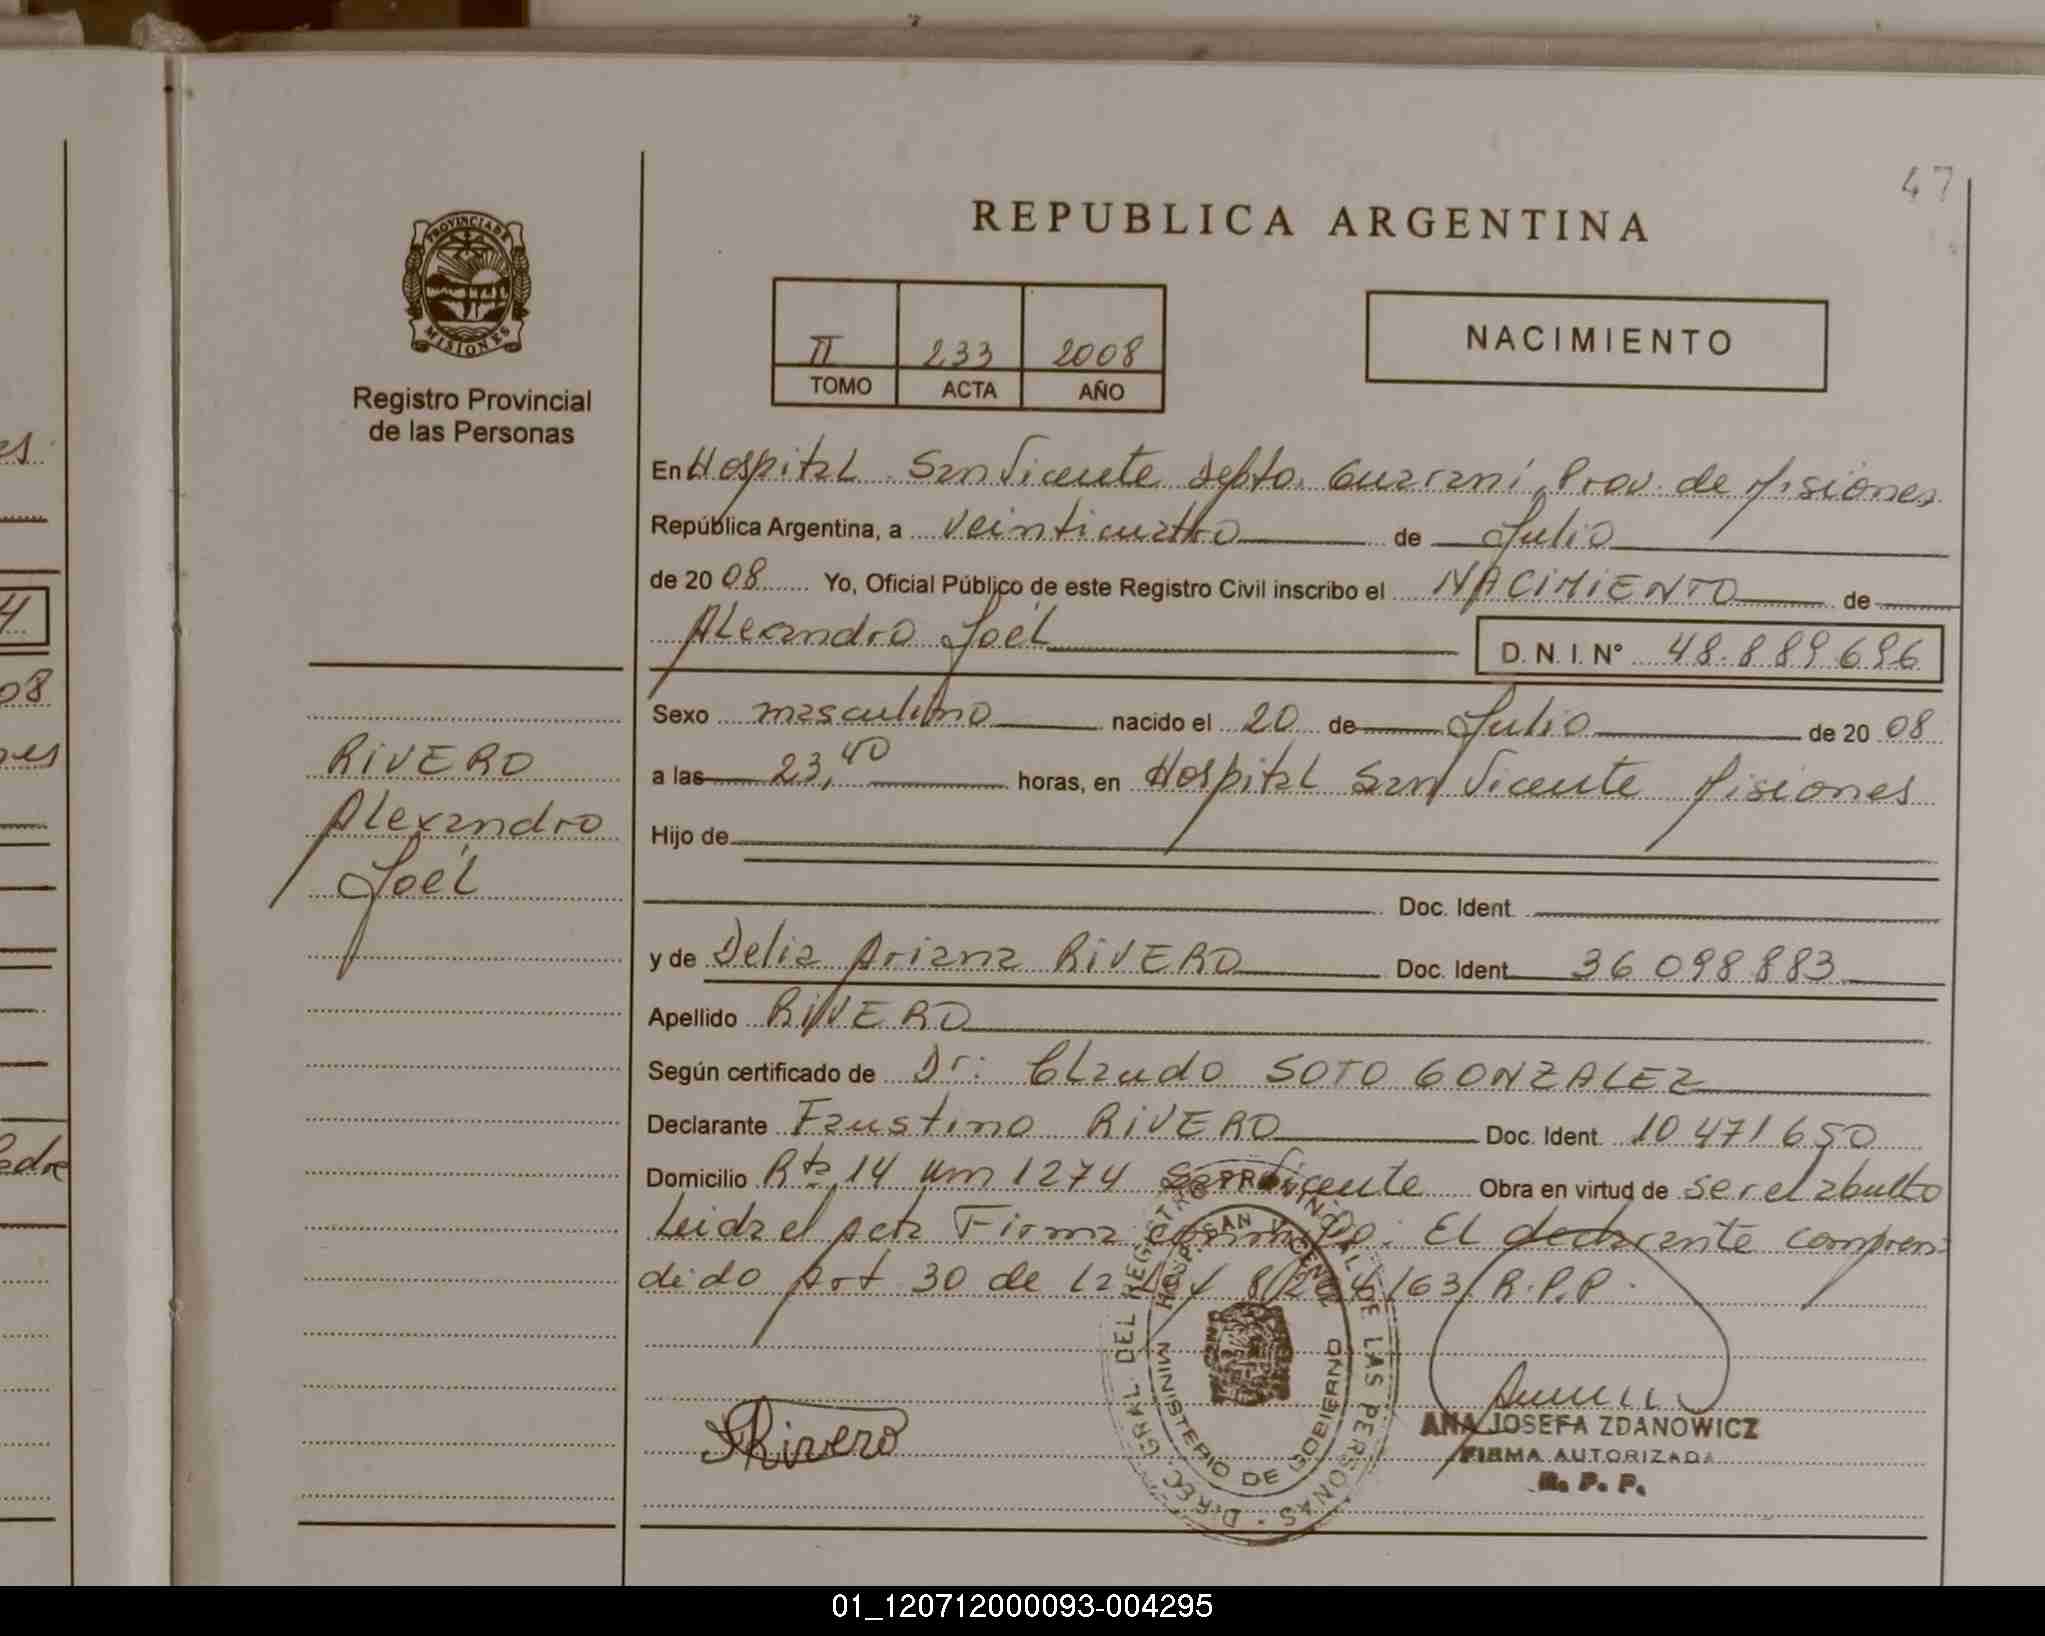 47
PROVINCIA DE
MISIONES
Registro Provincial
de las Personas
REPUBLICA ARGENTINA
II 233 2008
TOMO ACTA AÑO
NACIMIENTO
En Hospital San Vicente Depto. Guaraní Prov. de Misiones
República Argentina, a veinticuatro de Julio
de 20 08 Yo, Oficial Público de este Registro Civil inscribo el NACIMIENTO de
Alexandro Joél D. N. I. N° 48.889696
Sexo masculino nacido el 20 de Julio de 20 08
a las 23,40 horas, en Hospital San Vicente Misiones
Hijo de
Doc. Ident.
y de Delia Ariana RIVERO Doc. Ident. 36 098 883
Apellido RIVERO
Según certificado de Dr: Claudo SOTO GONZALEZ
Declarante Faustino RIVERO Doc. Ident. 10 471 650
Domicilio Rta 14 Km 1274 San Vicente Obra en virtud de ser el abuelo
Leida el acta Firma conmigo: El declarante compren
dido Art 30 de la Ley 8/204/63/ R.P.P.
RIVERO
Alexandro
Joél
Rivero
DIREC. GRAL. DEL REGISTRO PROVINCIAL DE LAS PERSONAS
HOSP. SAN VICENTE
MINISTERIO DE GOBIERNO
ANA JOSEFA ZDANOWICZ
FIRMA AUTORIZADA
R. P. P.
es
4
08
nes
adre
01_120712000093-004295